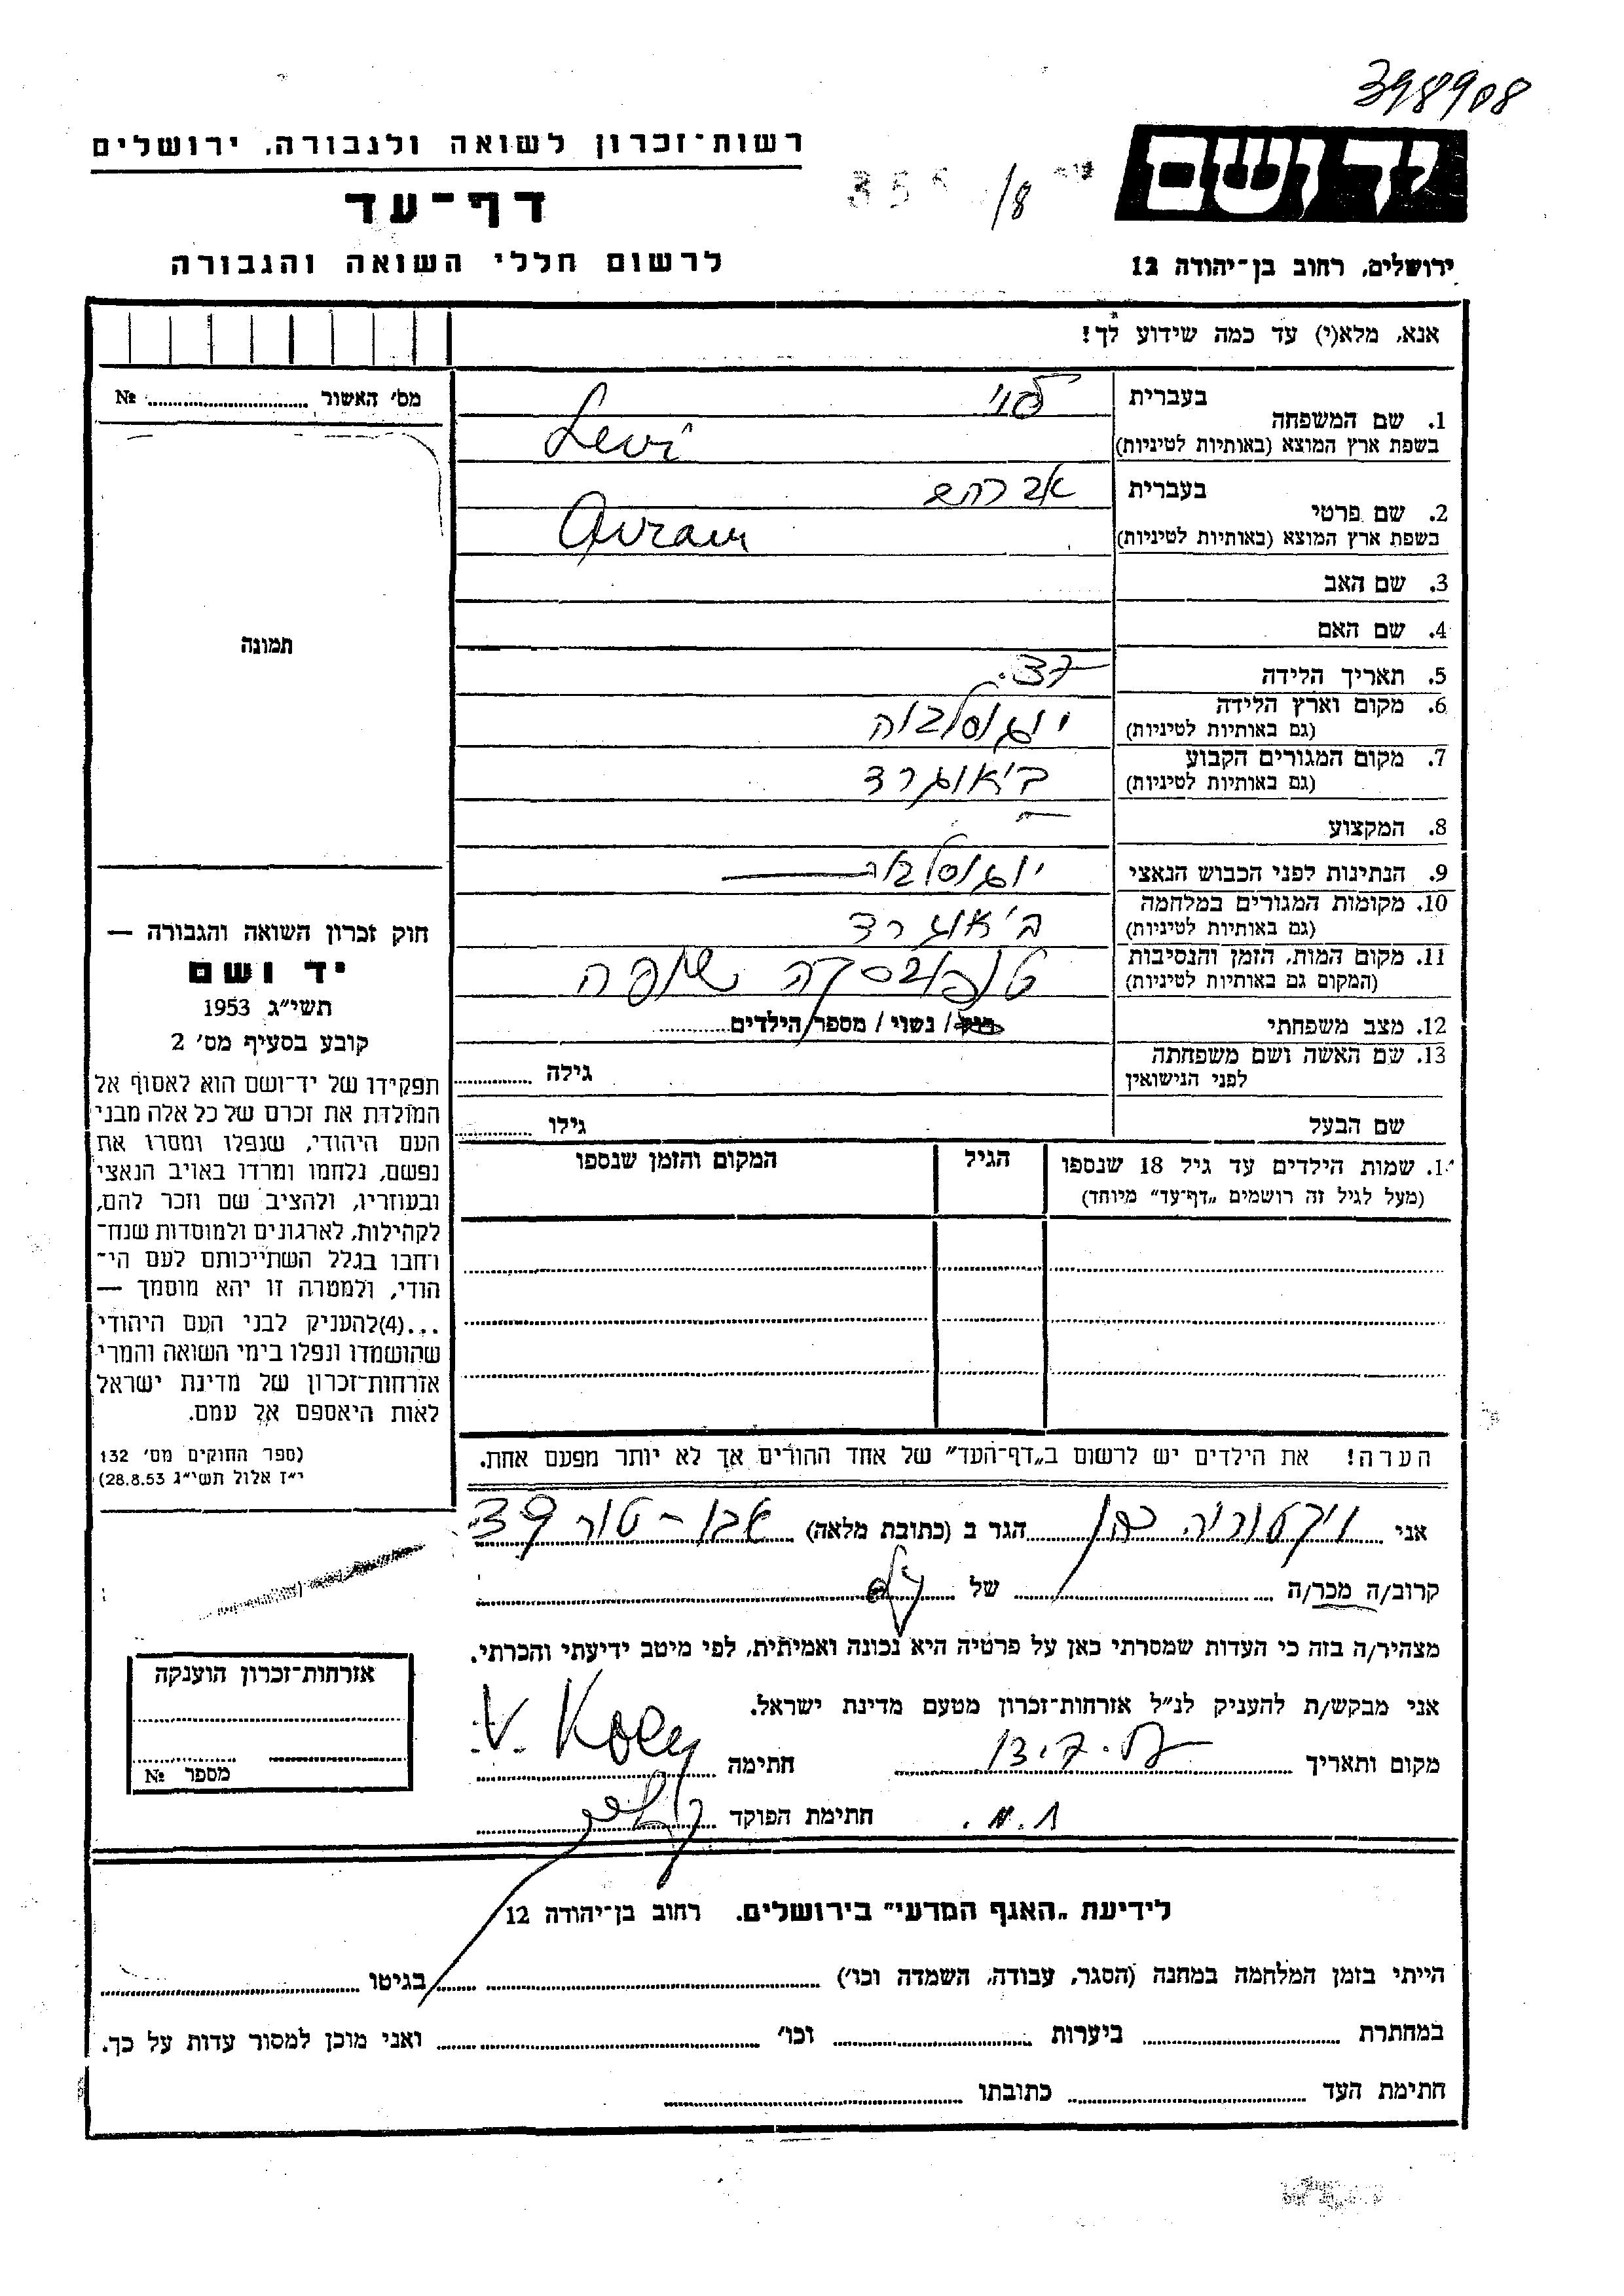 398908
רשות־זכרון לשואה ולגבורה, ירושלים
יד ושם
דף־עד
355 /8
לרשום חללי השואה והגבורה
ירושלים, רחוב בן־יהודה 12
אנא, מלא(י) עד כמה שידוע לך!
מס' האשור № ........
תמונה
בעברית לוי
1. שם המשפחה
בשפת ארץ המוצא (באותיות לטיניות) Levi
בעברית אברהם
2. שם פרטי
בשפת ארץ המוצא (באותיות לטיניות) Avram
3. שם האב
4. שם האם
5. תאריך הלידה
6. מקום וארץ הלידה יוגוסלביה
(גם באותיות לטיניות)
7. מקום המגורים הקבוע ביאוגרד
(גם באותיות לטיניות)
8. המקצוע —
9. הנתינות לפני הכבוש הנאצי יוגוסלבית
10. מקומות המגורים במלחמה ביאוגרד
(גם באותיות לטיניות)
11. מקום המות, הזמן והנסיבות טופובסקה שופה
(המקום גם באותיות לטיניות)
12. מצב משפחתי רווק / נשוי / מספר הילדים ........
13. שם האשה ושם משפחתה גילה ........
לפני הנישואין
שם הבעל גילו ........
1. שמות הילדים עד גיל 18 שנספו הגיל המקום והזמן שנספו
(מעל לגיל זה רושמים „דף־עד” מיוחד)
הערה! את הילדים יש לרשום ב„דף־העד” של אחד ההורים אך לא יותר מפעם אחת.
חוק זכרון השואה והגבורה —
יד ושם
תשי״ג 1953
קובע בסעיף מס' 2
תפקידו של יד־ושם הוא לאסוף אל
המולדת את זכרם של כל אלה מבני
העם היהודי, שנפלו ומסרו את
נפשם, נלחמו ומרדו באויב הנאצי
ובעוזריו, ולהציב שם וזכר להם,
לקהילות, לארגונים ולמוסדות שנח־
רחבו בגלל השתייכותם לעם הי־
הודי, ולמטרה זו יהא מוסמך —
...(4)להעניק לבני העם היהודי
שהושמדו ונפלו בימי השואה והמרי
אזרחות־זכרון של מדינת ישראל
לאות היאספם אל עמם.
(ספר החוקים מס' 132
י״ז אלול תשי״ג 28.8.53)
אני ויקטוריה כהן הגר ב (כתובת מלאה) אבו-טור
קרוב/ה מכר/ה ........ של ........
מצהיר/ה בזה כי העדות שמסרתי כאן על פרטיה היא נכונה ואמיתית, לפי מיטב ידיעתי והכרתי.
אני מבקש/ת להעניק לנ״ל אזרחות־זכרון מטעם מדינת ישראל.
מקום ותאריך ........ חתימה V. Koen
חתימת הפוקד
אזרחות־זכרון הוענקה
מספר №
לידיעת „האגף המדעי” בירושלים. רחוב בן־יהודה 12
הייתי בזמן המלחמה במחנה (הסגר, עבודה, השמדה וכו') ........ בגיטו ........
במחתרת ........ ביערות ........ וכו' ........ ואני מוכן למסור עדות על כך.
חתימת העד ........ כתובתו ........